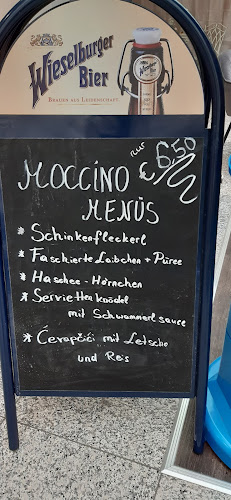 Wieselburger
Bier
BRAUEN AUS LEIDENSCHAFT
nur
€ 6,50
MOCCINO
MENÜS
* Schinkenfleckerl
* Faschierte Laibchen + Püree
* Haschee-Hörnchen
* Serviettenknödel
mit Schwammerlsauce
* Ćevapčići mit Letscho
und Reis